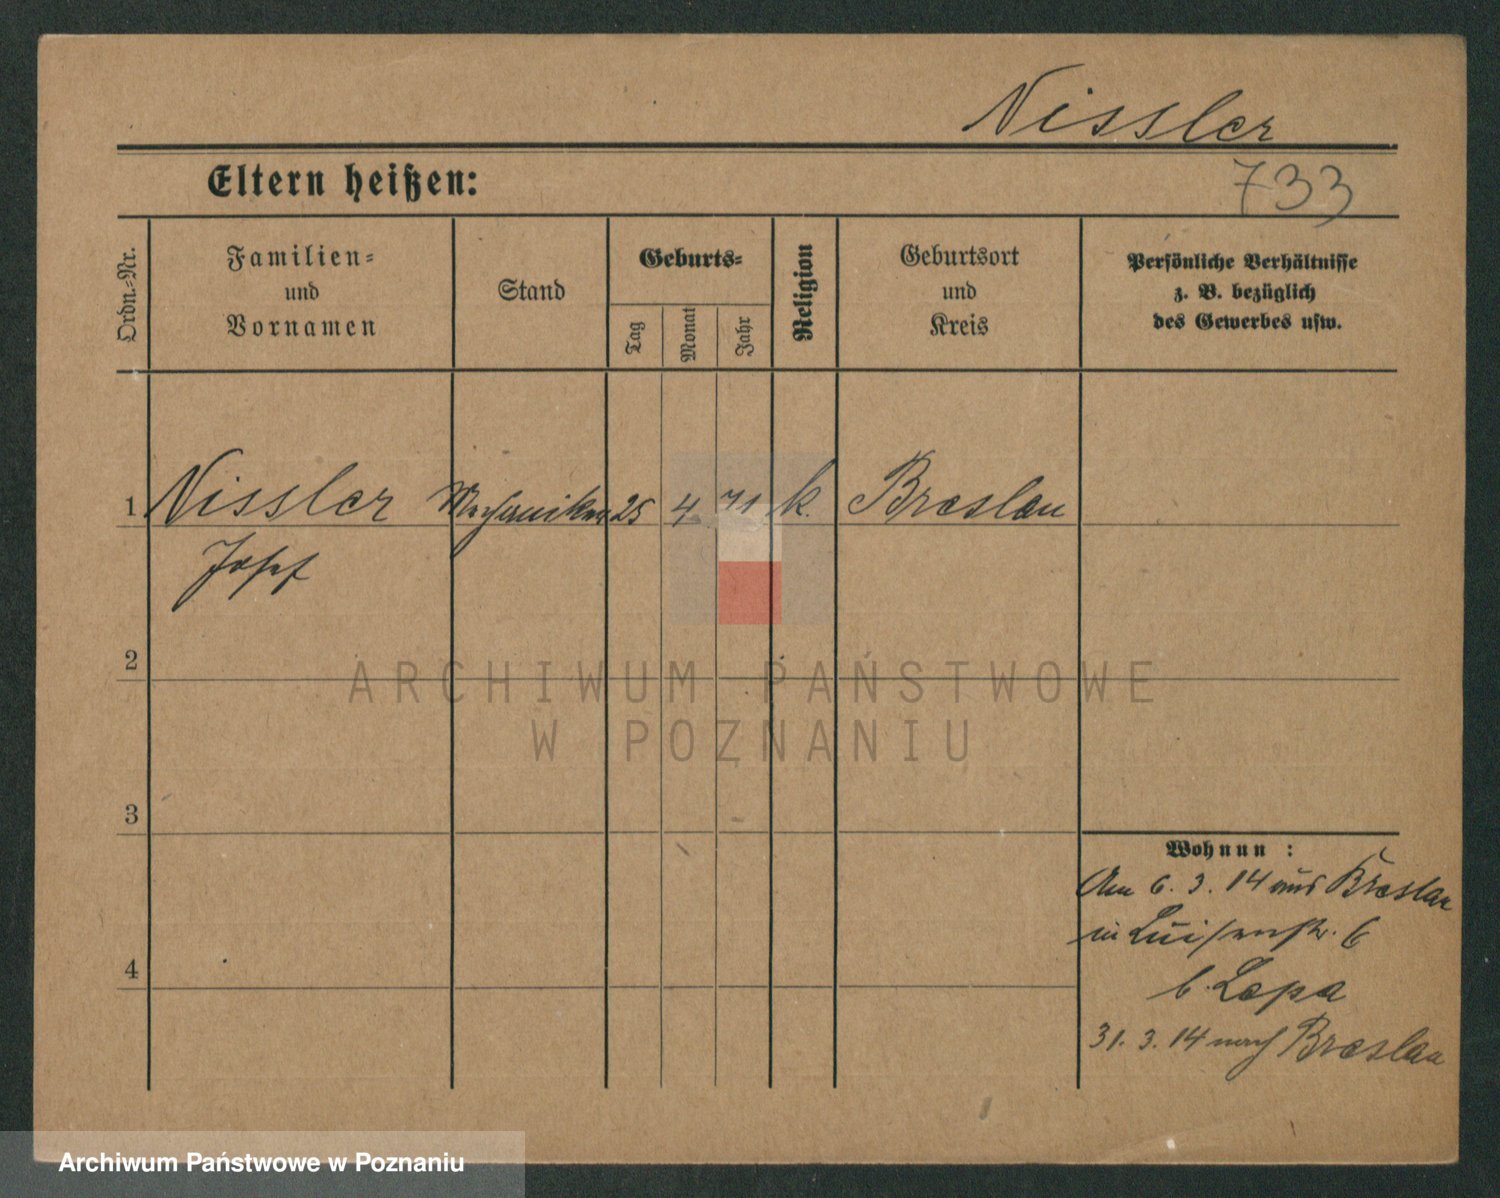 Nissler
Eltern heißen:
733
Ordn.-Nr.
Familien-
und
Vornamen
Stand
Geburts-
Tag
Monat
Jahr
Religion
Geburtsort
und
Kreis
Persönliche Verhältnisse
z. B. bezüglich
des Gewerbes usw.
1 Nissler Mechaniker 25 4 71 k. Breslau
Josef
2
ARCHIWUM PAŃSTWOWE
W POZNANIU
3
Wohnun :
Am 6. 3. 14 aus Breslau
in Luisenstr. 6
b. Lepa
4
31. 3. 14 nach Breslau
Archiwum Państwowe w Poznaniu